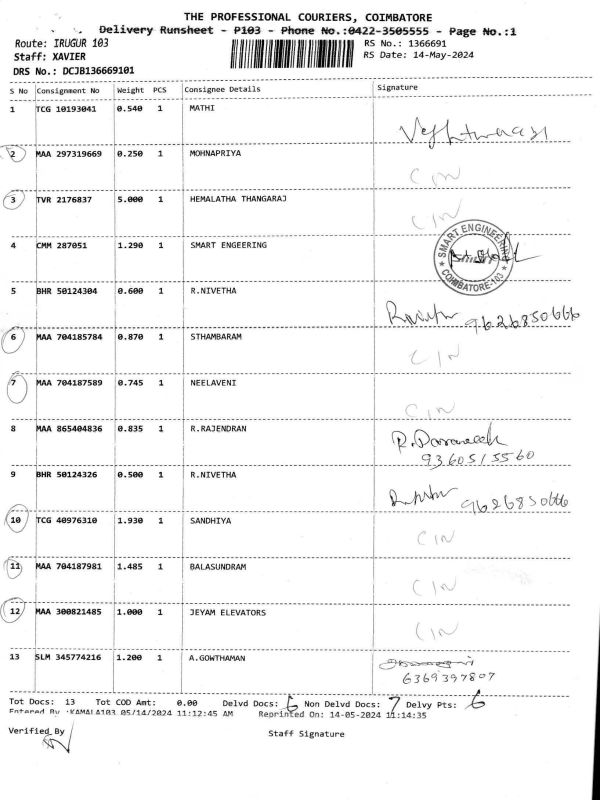 THE PROFESSIONAL COURIERS, COIMBATORE
Delivery Runsheet - P103 - Phone No.:0422-3505555 - Page No.:1
Route: IRUGUR 103 RS No.: 1366691
Staff: XAVIER RS Date: 14-May-2024
DRS No.: DCJB136669101
S No Consignment No Weight PCS Consignee Details Signature
1 TCG 10193041 0.540 1 MATHI
2 MAA 297319669 0.250 1 MOHNAPRIYA CIN
3 TVR 2176837 5.000 1 HEMALATHA THANGARAJ CIN
4 CMM 287051 1.290 1 SMART ENGEERING SMART ENGINEERING COIMBATORE-103
5 BHR 50124304 0.600 1 R.NIVETHA 9626850666
6 MAA 704185784 0.870 1 STHAMBARAM CIN
7 MAA 704187589 0.745 1 NEELAVENI CIN
8 MAA 865404836 0.835 1 R.RAJENDRAN
9360515560
9 BHR 50124326 0.500 1 R.NIVETHA 9626850666
10 TCG 40976310 1.930 1 SANDHIYA CIN
11 MAA 704187981 1.485 1 BALASUNDRAM CIN
12 MAA 300821485 1.000 1 JEYAM ELEVATORS CIN
13 SLM 345774216 1.200 1 A.GOWTHAMAN
6369397807
Tot Docs: 13 Tot COD Amt: 0.00 Delvd Docs: 6 Non Delvd Docs: 7 Delvy Pts: 6
Entered By :KAMALA103 05/14/2024 11:12:45 AM Reprinted On: 14-05-2024 11:14:35
Verified By Staff Signature